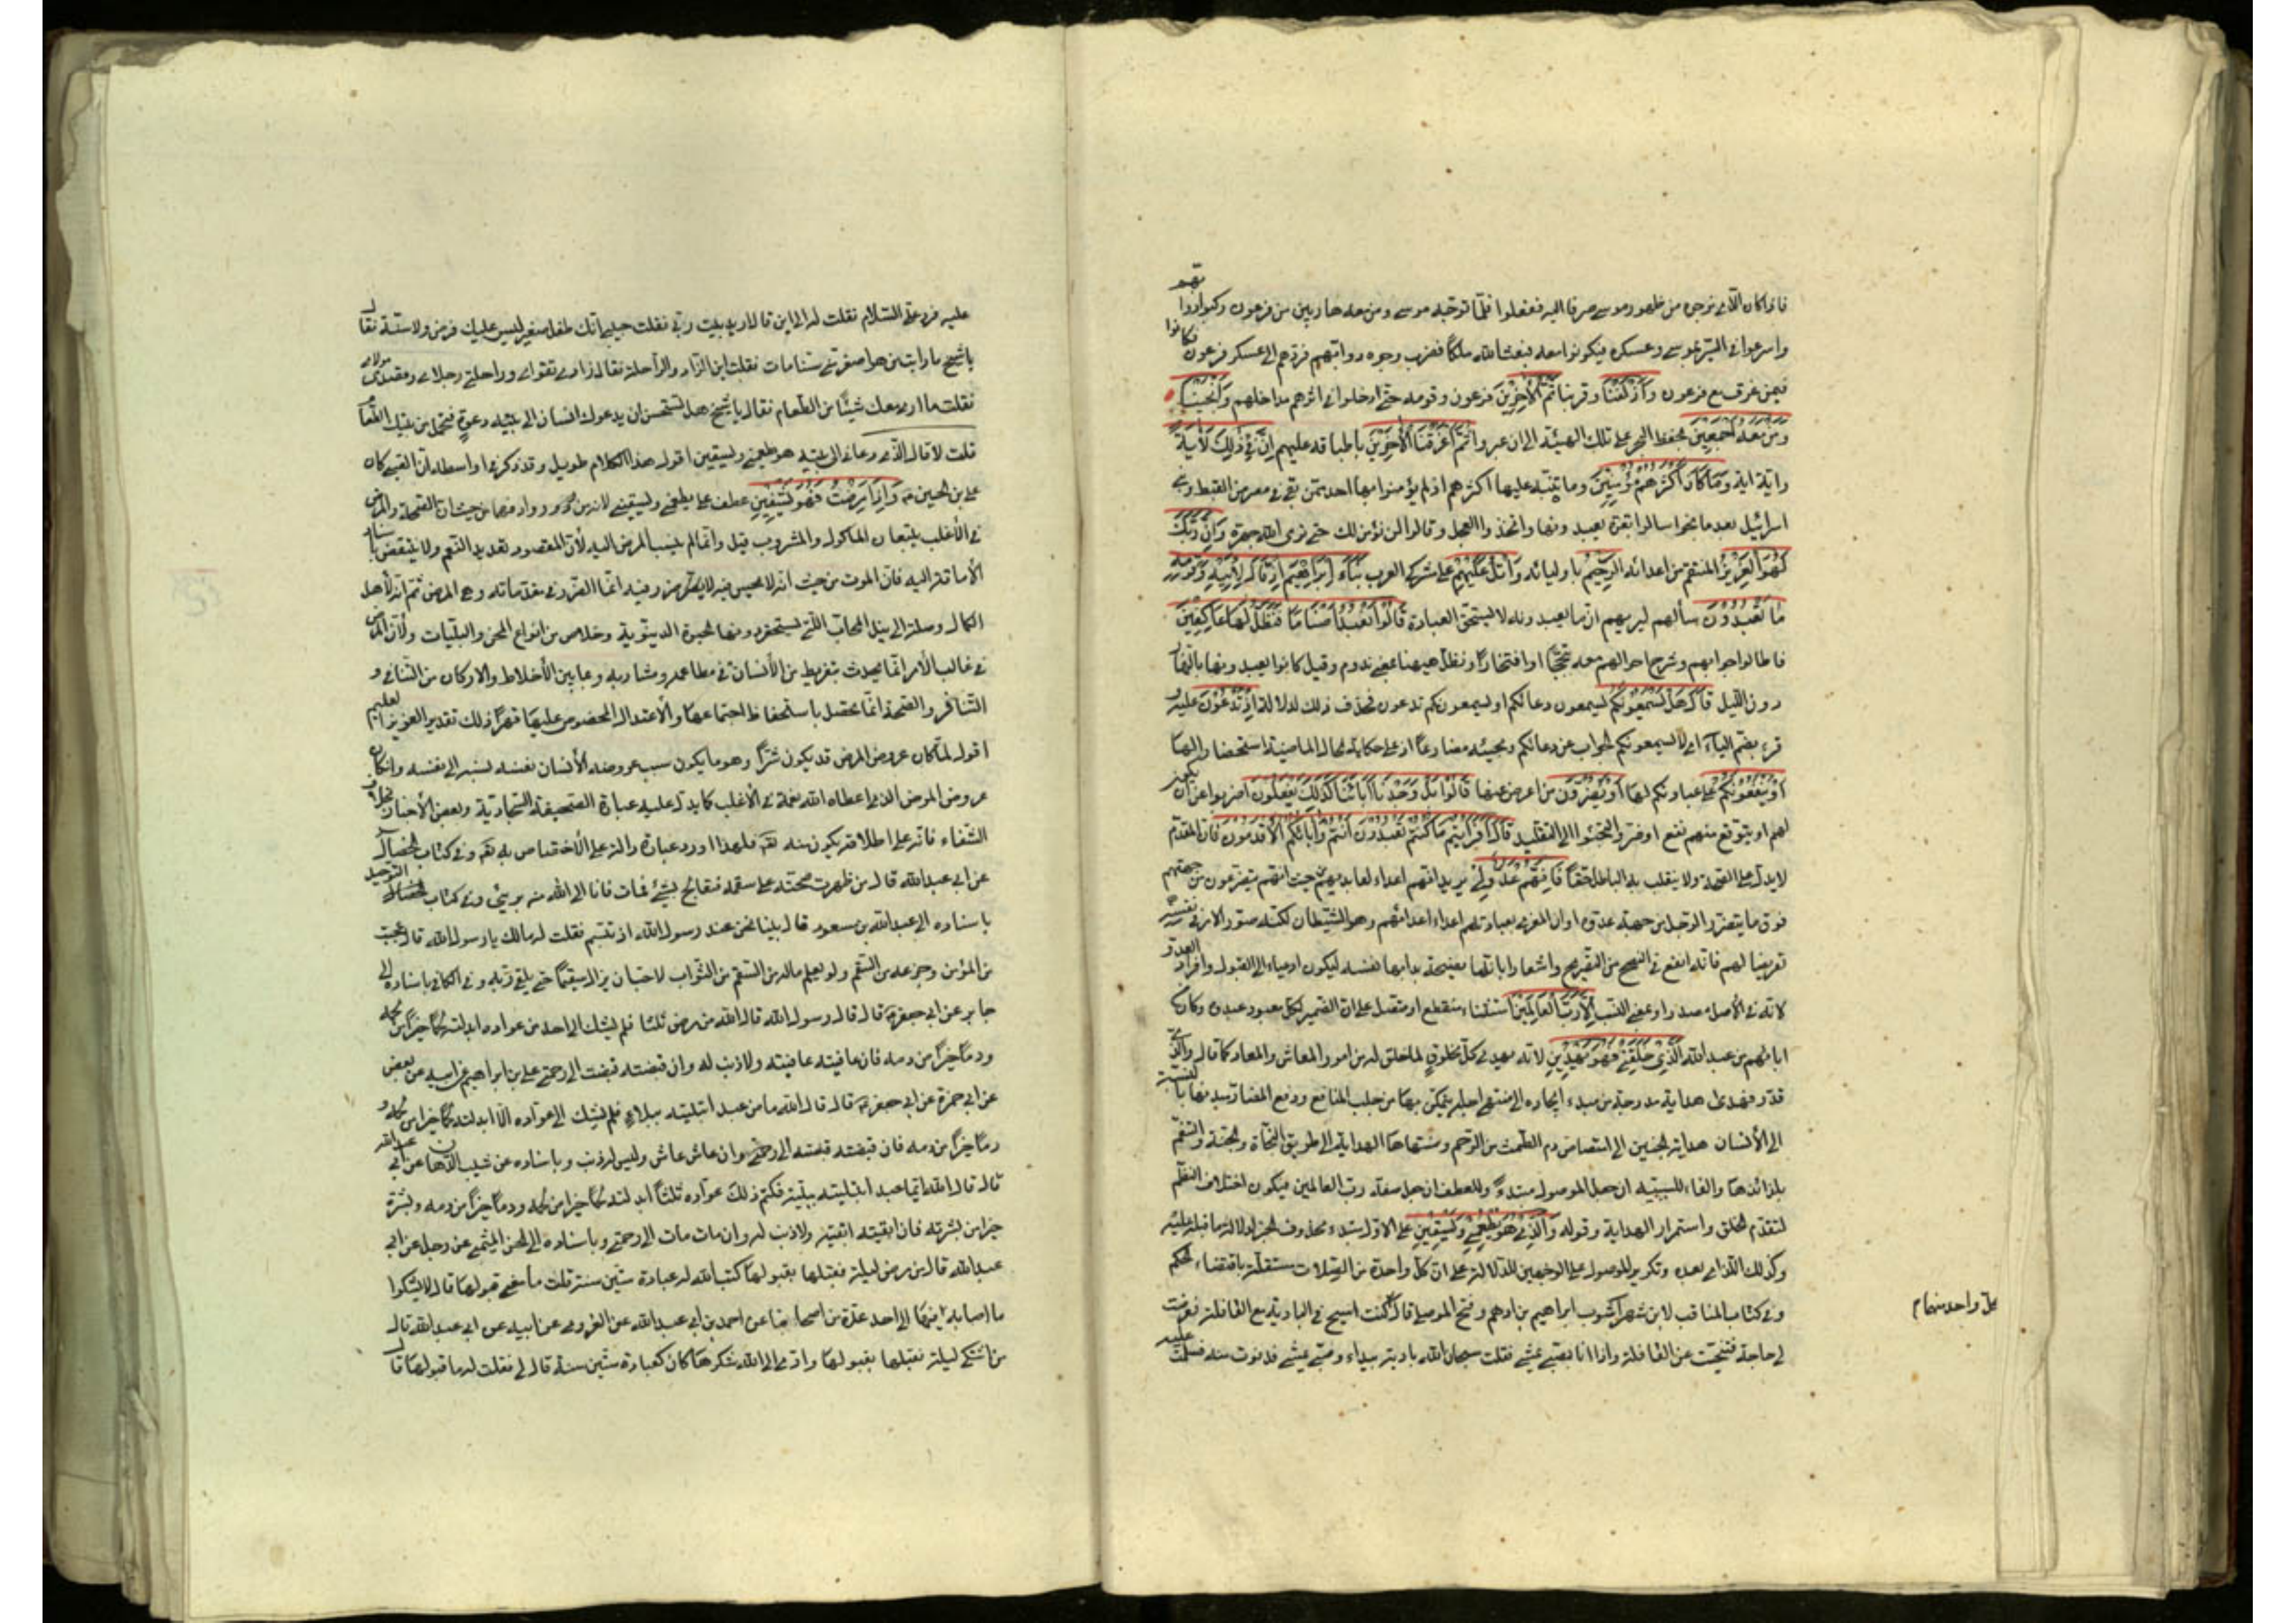 فاذا كان الذي نرجوه من ظهور موسى صرفا اليه ففعلوا فلما توجه موسى ومن معه هاربين من فرعون ركبوا دوابهم
واسرعوا في السير لموسى وعسكره فيكونوا معه فبعث الله ملكا فضرب وجوه دوابهم فردهم الى عسكر فرعون فكانوا
فيمن غرق مع فرعون وَأَزْلَفْنَا وقربنا ثَمَّ الْآخَرِينَ فرعون وقومه حتى ادخلوا في اثرهم مداخلهم وَأَنْجَيْنَا
ومن معه أَجْمَعِينَ بحفظ البحر على تلك الهيئة الى ان عبروا ثُمَّ أَغْرَقْنَا الْآخَرِينَ باطباقه عليهم إِنَّ فِي ذَلِكَ لَآيَةً
واية اية وَمَا كَانَ أَكْثَرُهُمْ مُؤْمِنِينَ وما تنبه عليها اكثرهم اذ لم يؤمنوا بها احد ممن بقي في مصر من القبط وبني
اسرائيل بعد ما نجوا سالوا بقرة يعبدونها واتخذوا العجل وقالوا لن نؤمن لك حتى نرى الله جهرة وَإِنَّ رَبَّكَ
لَهُوَ الْعَزِيزُ المنتقم من اعدائه الرَّحِيمُ باوليائه وَاتْلُ عَلَيْهِمْ على مشركي العرب نَبَأَ إِبْرَاهِيمَ إِذْ قَالَ لِأَبِيهِ وَقَوْمِهِ
مَا تَعْبُدُونَ سألهم ليريهم ان ما يعبدونه لا يستحق العبادة قَالُوا نَعْبُدُ أَصْنَامًا فَنَظَلُّ لَهَا عَاكِفِينَ
فاطالوا جوابهم وشرح حالهم معه تبجحا وافتخارا ونظل ههنا بمعنى ندوم وقيل كانوا يعبدونها بالنهار
دون الليل قَالَ هَلْ يَسْمَعُونَكُمْ يسمعون دعائكم او يسمعونكم تدعون فحذف ذلك لدلالة إِذْ تَدْعُونَ عليه
قرء بضم الياء اي لا يسمعونكم الجواب عن دعائكم ومجيئه مضارعا اذ على حكاية الحال الماضية استحضارا لها
أَوْ يَنْفَعُونَكُمْ على عبادتكم لها أَوْ يَضُرُّونَ من اعرض عنها قَالُوا بَلْ وَجَدْنَا آبَاءَنَا كَذَلِكَ يَفْعَلُونَ اضربوا عن ان يكون
لهم او يتوقع منهم نفع او ضر والتجئوا الى التقليد قَالَ أَفَرَأَيْتُمْ مَا كُنْتُمْ تَعْبُدُونَ أَنْتُمْ وَآبَاؤُكُمُ الْأَقْدَمُونَ فان التقدم
لا يدل على الصحة ولا ينقلب به الباطل حقا فَإِنَّهُمْ عَدُوٌّ لِي يريد انهم اعداء لعابديهم من حيث انهم يتضررون من جهتهم
فوق ما يتضرر الرجل من جهة عدوه او ان المغري بعبادتهم اعدا اعدائهم وهو الشيطان لكنه صور الامر في نفسه
تعريضا لهم فانه انفع في النصح من التصريح واشعارا بانها نصيحة بدأ بها نفسه ليكون ادعى الى القبول وافراد العدو
لانه في الأصل مصدر او بمعنى النسب إِلَّا رَبَّ الْعَالَمِينَ استثناء منقطع او متصل على ان الضمير لكل معبود عبدوه وكان من
ابائهم من عبد الله الَّذِي خَلَقَنِي فَهُوَ يَهْدِينِ لانه يهدي كل مخلوق لما خلق له من امور المعاش والمعاد كما قال والذي
قدر فهدى هداية مدرجة من مبدء ايجاده الى منتهى اجله يتمكن بها من جلب المنافع ودفع المضار مبدءها بالنسبة
الى الأنسان هداية الجنين الى امتصاص دم الطمث من الرحم ومنتهاها الهداية الى طريق النجاة والجنة والتنعم
بلذائذها والفاء للسببية ان جعل الموصول مبتدء وللعطف ان جعل صفة رب العالمين فيكون اختلاف النظم
لتقدم الخلق واستمرار الهداية وقوله وَالَّذِي هُوَ يُطْعِمُنِي وَيَسْقِينِ على الاول مبتدء محذوف الخبر لدلالة ما قبله عليه
وكذلك اللذان بعده وتكرير الموصول على الوجهين للدلالة على ان كل واحدة من الصلات مستقلة باقتضاء الحكم
وفي كتاب المناقب لابن شهراشوب ابراهيم بن ادهم وفتح الموصلي قال كنت اسيح في البادية مع القافلة فعرضت
لي حاجة فتنحيت عن القافلة واذا انا بصبي يمشي فقلت سبحان الله بادية بيداء وصبي يمشي فدنوت منه فسلمت عليه
كل واحد منهما م
عليه فرد علي السلام فقلت له الى اين قال اريد بيت ربي فقلت حبيبي انك طفل صغير ليس عليك فرض ولا سنة فقال
يا شيخ ما رايت من هو اصغر مني سنا مات فقلت اين الزاد والراحلة فقال زادي تقواي وراحلتي رجلاي ومقصدي مولاي
فقلت ما ارى معك شيئا من الطعام فقال يا شيخ هل تستحسن ان يدعوك انسان الى بيته دعوة فتحمل من بيتك الطعام
قلت لا قال الذي دعاني الى بيته هو يطعمني ويسقين اقول هذا الكلام طويل وقد ذكر في اواسطه ان الصبي كان
علي بن الحسين ع وَإِذَا مَرِضْتُ فَهُوَ يَشْفِينِ عطف على يطعمني ويسقيني لانه من روادفهما من حيث ان الصحة والمرض
في الأغلب يتبعان الماكول والمشروب قيل وانما لم ينسب المرض اليه لأن المقصود تعديد النعم ولا ينتقض باسناد
الأماتة اليه فان الموت من حيث انه لا يحس به لا ضرر فيه انما الضرر في مقدماته وهي المرض ثم انه لأهل
الكمال وصلة الى نيل المحاب التي يستحقر دونها الحيوة الدنيوية وخلاص من انواع المحن والبليات ولأن المرض
في غالب الأمر انما يحدث بتفريط من الأنسان في مطاعمه ومشاربه وبما بين الأخلاط والاركان من التنافي و
التنافر والصحة انما تحصل باستحفاظ اجتماعها والأعتدال المخصوص عليها قهرا وذلك تقدير العزيز العليم
اقول لما كان عروض المرض قد يكون شرا وهو ما يكون سبب عروضه الأنسان نفسه نسبه الى نفسه وان كان
عروض المرض الذي اعطاه الله نعمة في الأغلب كما يدل عليه عبارة الصحيفة السجادية وبعض الأخبار بخلاف
الشفاء فانه على اطلاقه يكون منه تعه فلهذا اورد عبارة دالة على الأختصاص به تعه وفي كتاب الخصال
عن ابي عبد الله قال من ظهرت صحته على سقمه فيعالج بشئ فمات فانا الى الله منه برئ وفي كتاب التوحيد
باسناده الى عبد الله بن مسعود قال بينا نحن عند رسول الله اذ تبسم فقلت له مالك يا رسول الله قال عجبت
من المؤمن وجزعه من السقم ولو يعلم ماله من السقم من الثواب لاحب ان يزال سقيما حتى يلقى ربه وفي الكافي باسناده الى
جابر عن ابي جعفر ع قال قال رسول الله قال الله من مرض ثلثا فلم يشك الى احد من عواده ابدلته لحما خيرا من لحمه
ودما خيرا من دمه فان عافيته عافيته ولا ذنب له وان قبضته قبضت الى رحمتي علي بن ابراهيم عن ابيه عن بعض
عن ابي حمزة عن ابي جعفر ع قال قال الله ما من عبد ابتليته ببلاء فلم يشك الى عواده الا ابدلته لحما خيرا من لحمه و
دما خيرا من دمه فان قبضته قبضته الى رحمتي وان عاش عاش وليس له ذنب وباسناده عن عن ابي عبد الله
قال قال الله ايما عبد ابتليته ببلية فكتم ذلك عواده ثلثا ابدلته لحما خيرا من لحمه ودما خيرا من دمه وبشرة
خيرا من بشرته فان ابقيته ابقيته ولا ذنب له وان مات مات الى رحمتي وباسناده الى الحسن الميثمي عن رجل عن ابي
عبد الله قال من مرض ليلة فقبلها بقبولها كتب الله له عبادة ستين سنة قلت ما معنى قبولها قال لا يشكوا
ما اصابه فيها الى احد عدة من اصحابنا عن احمد بن ابي عبد الله عن العزرمي عن ابيه عن ابي عبد الله قال
من اشتكى ليلة فقبلها بقبولها وادى الى الله شكرها كان كعبادة ستين سنة قال ابي فقلت له ما قبولها قال